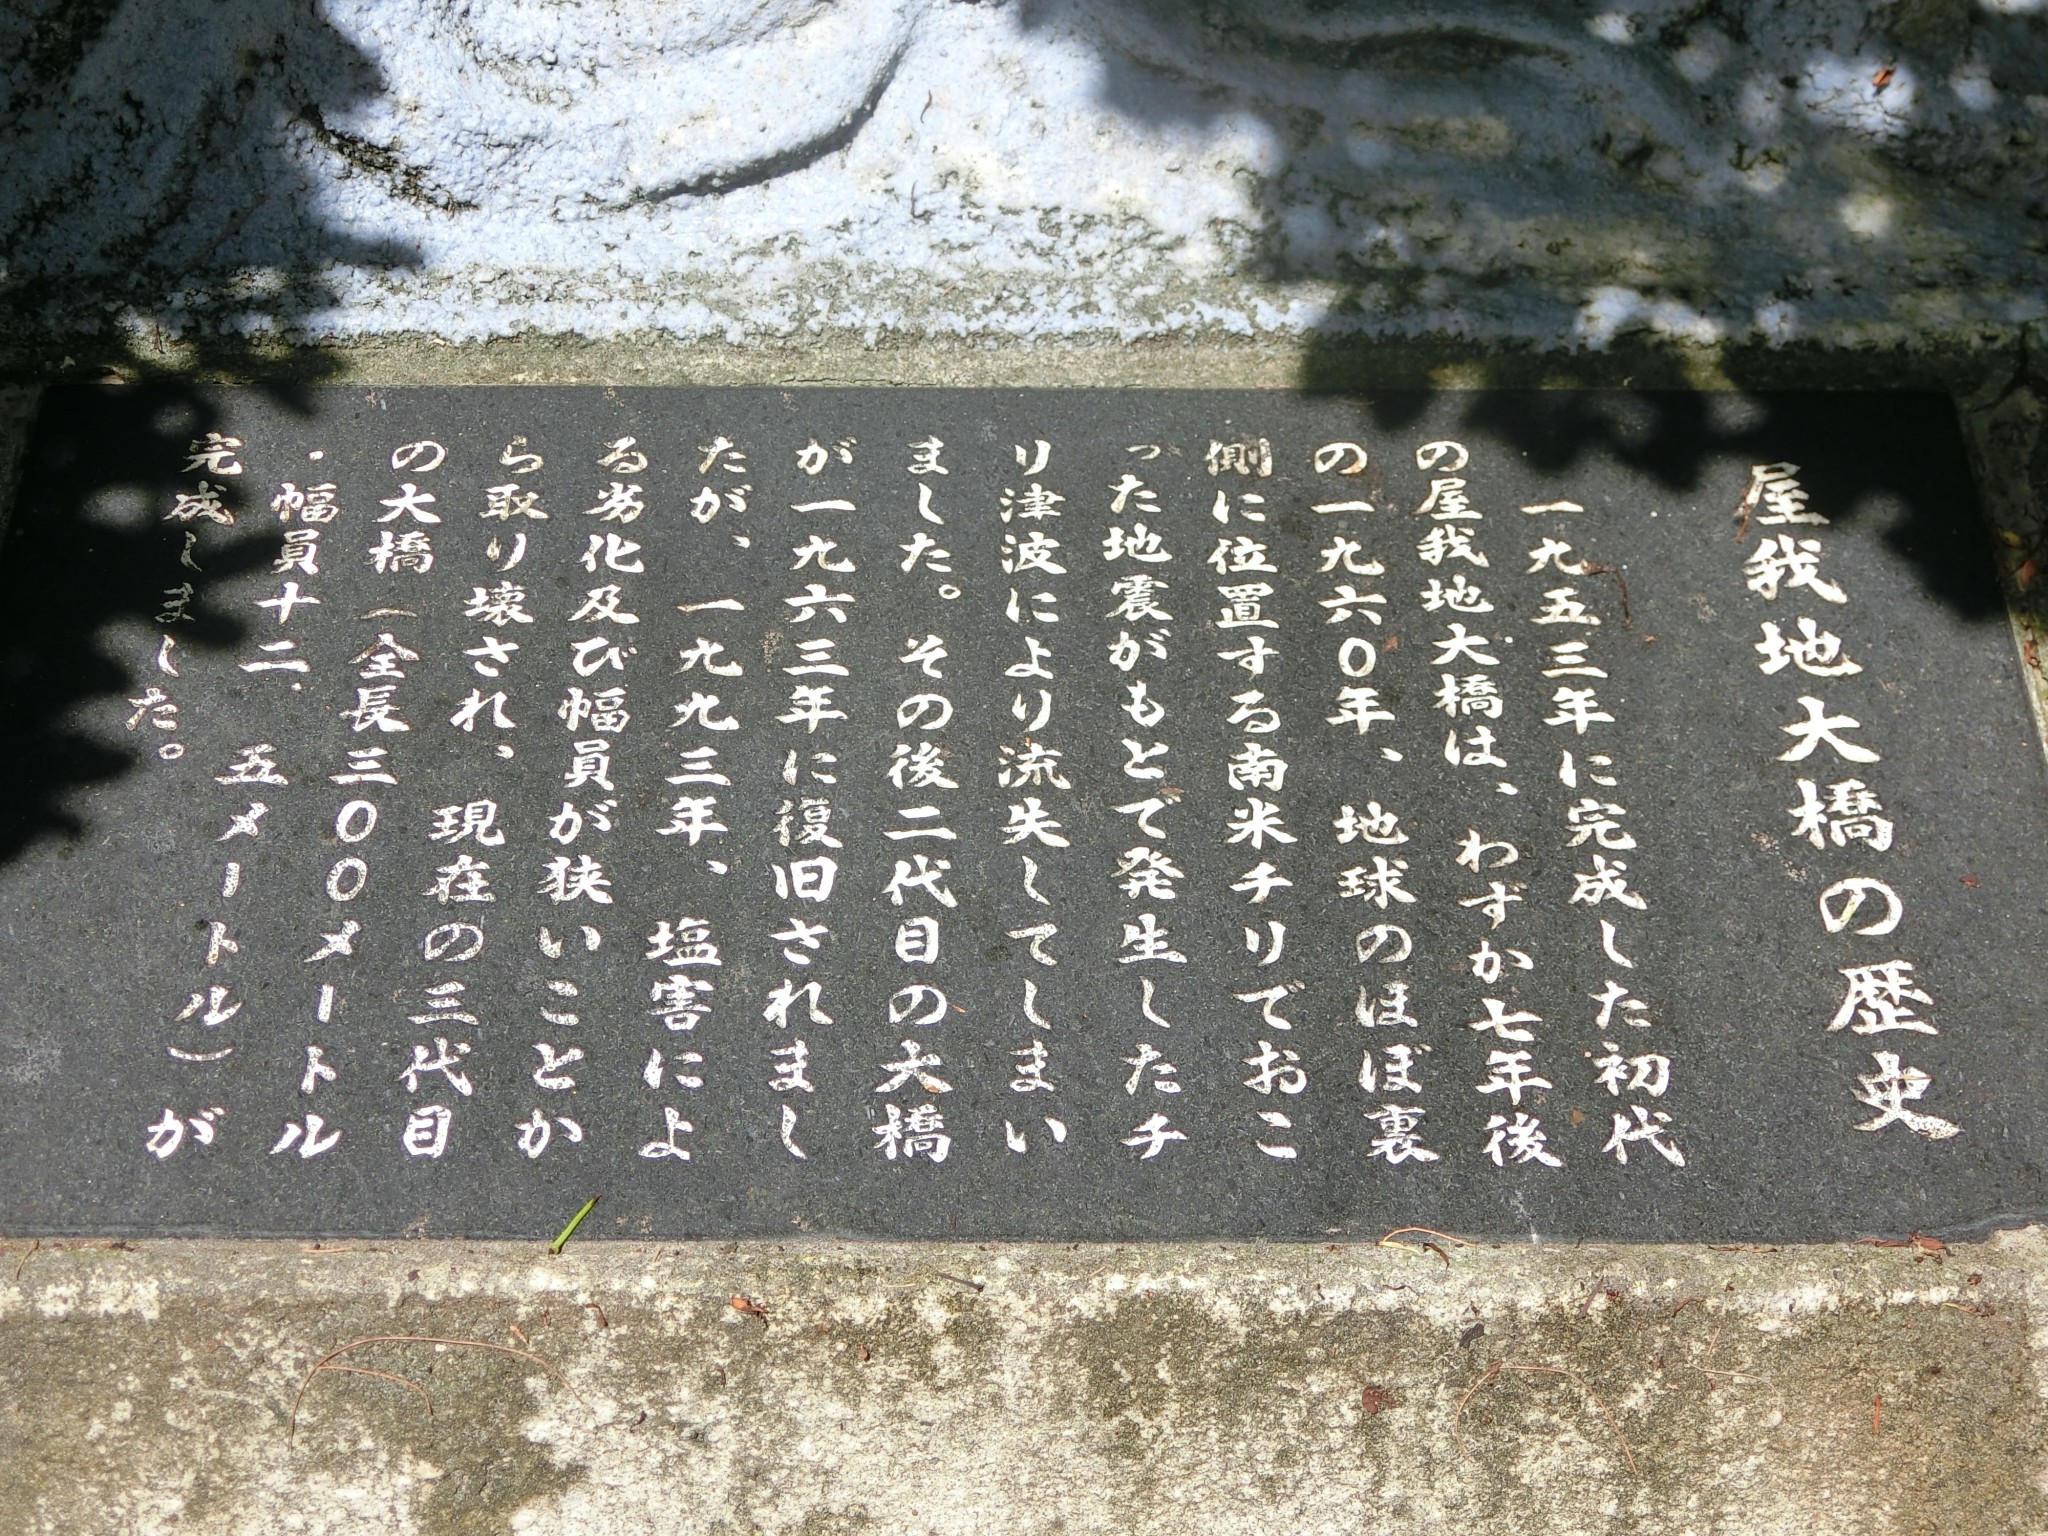 屋我地大橋の歴史
一九五三年に完成した初代
の屋我地大橋は、わずか七年後
の一九六〇年、地球のほぼ裏
側に位置する南米チリでおこ
った地震がもとで発生したチ
リ津波により流失してしまい
ました。その後二代目の大橋
が一九六三年に復旧されまし
たが、一九九三年、塩害によ
る劣化及び幅員が狭いことか
ら取り壊され、現在の三代目
の大橋(全長三〇〇メートル
・幅員十二．五メートル)が
完成しました。